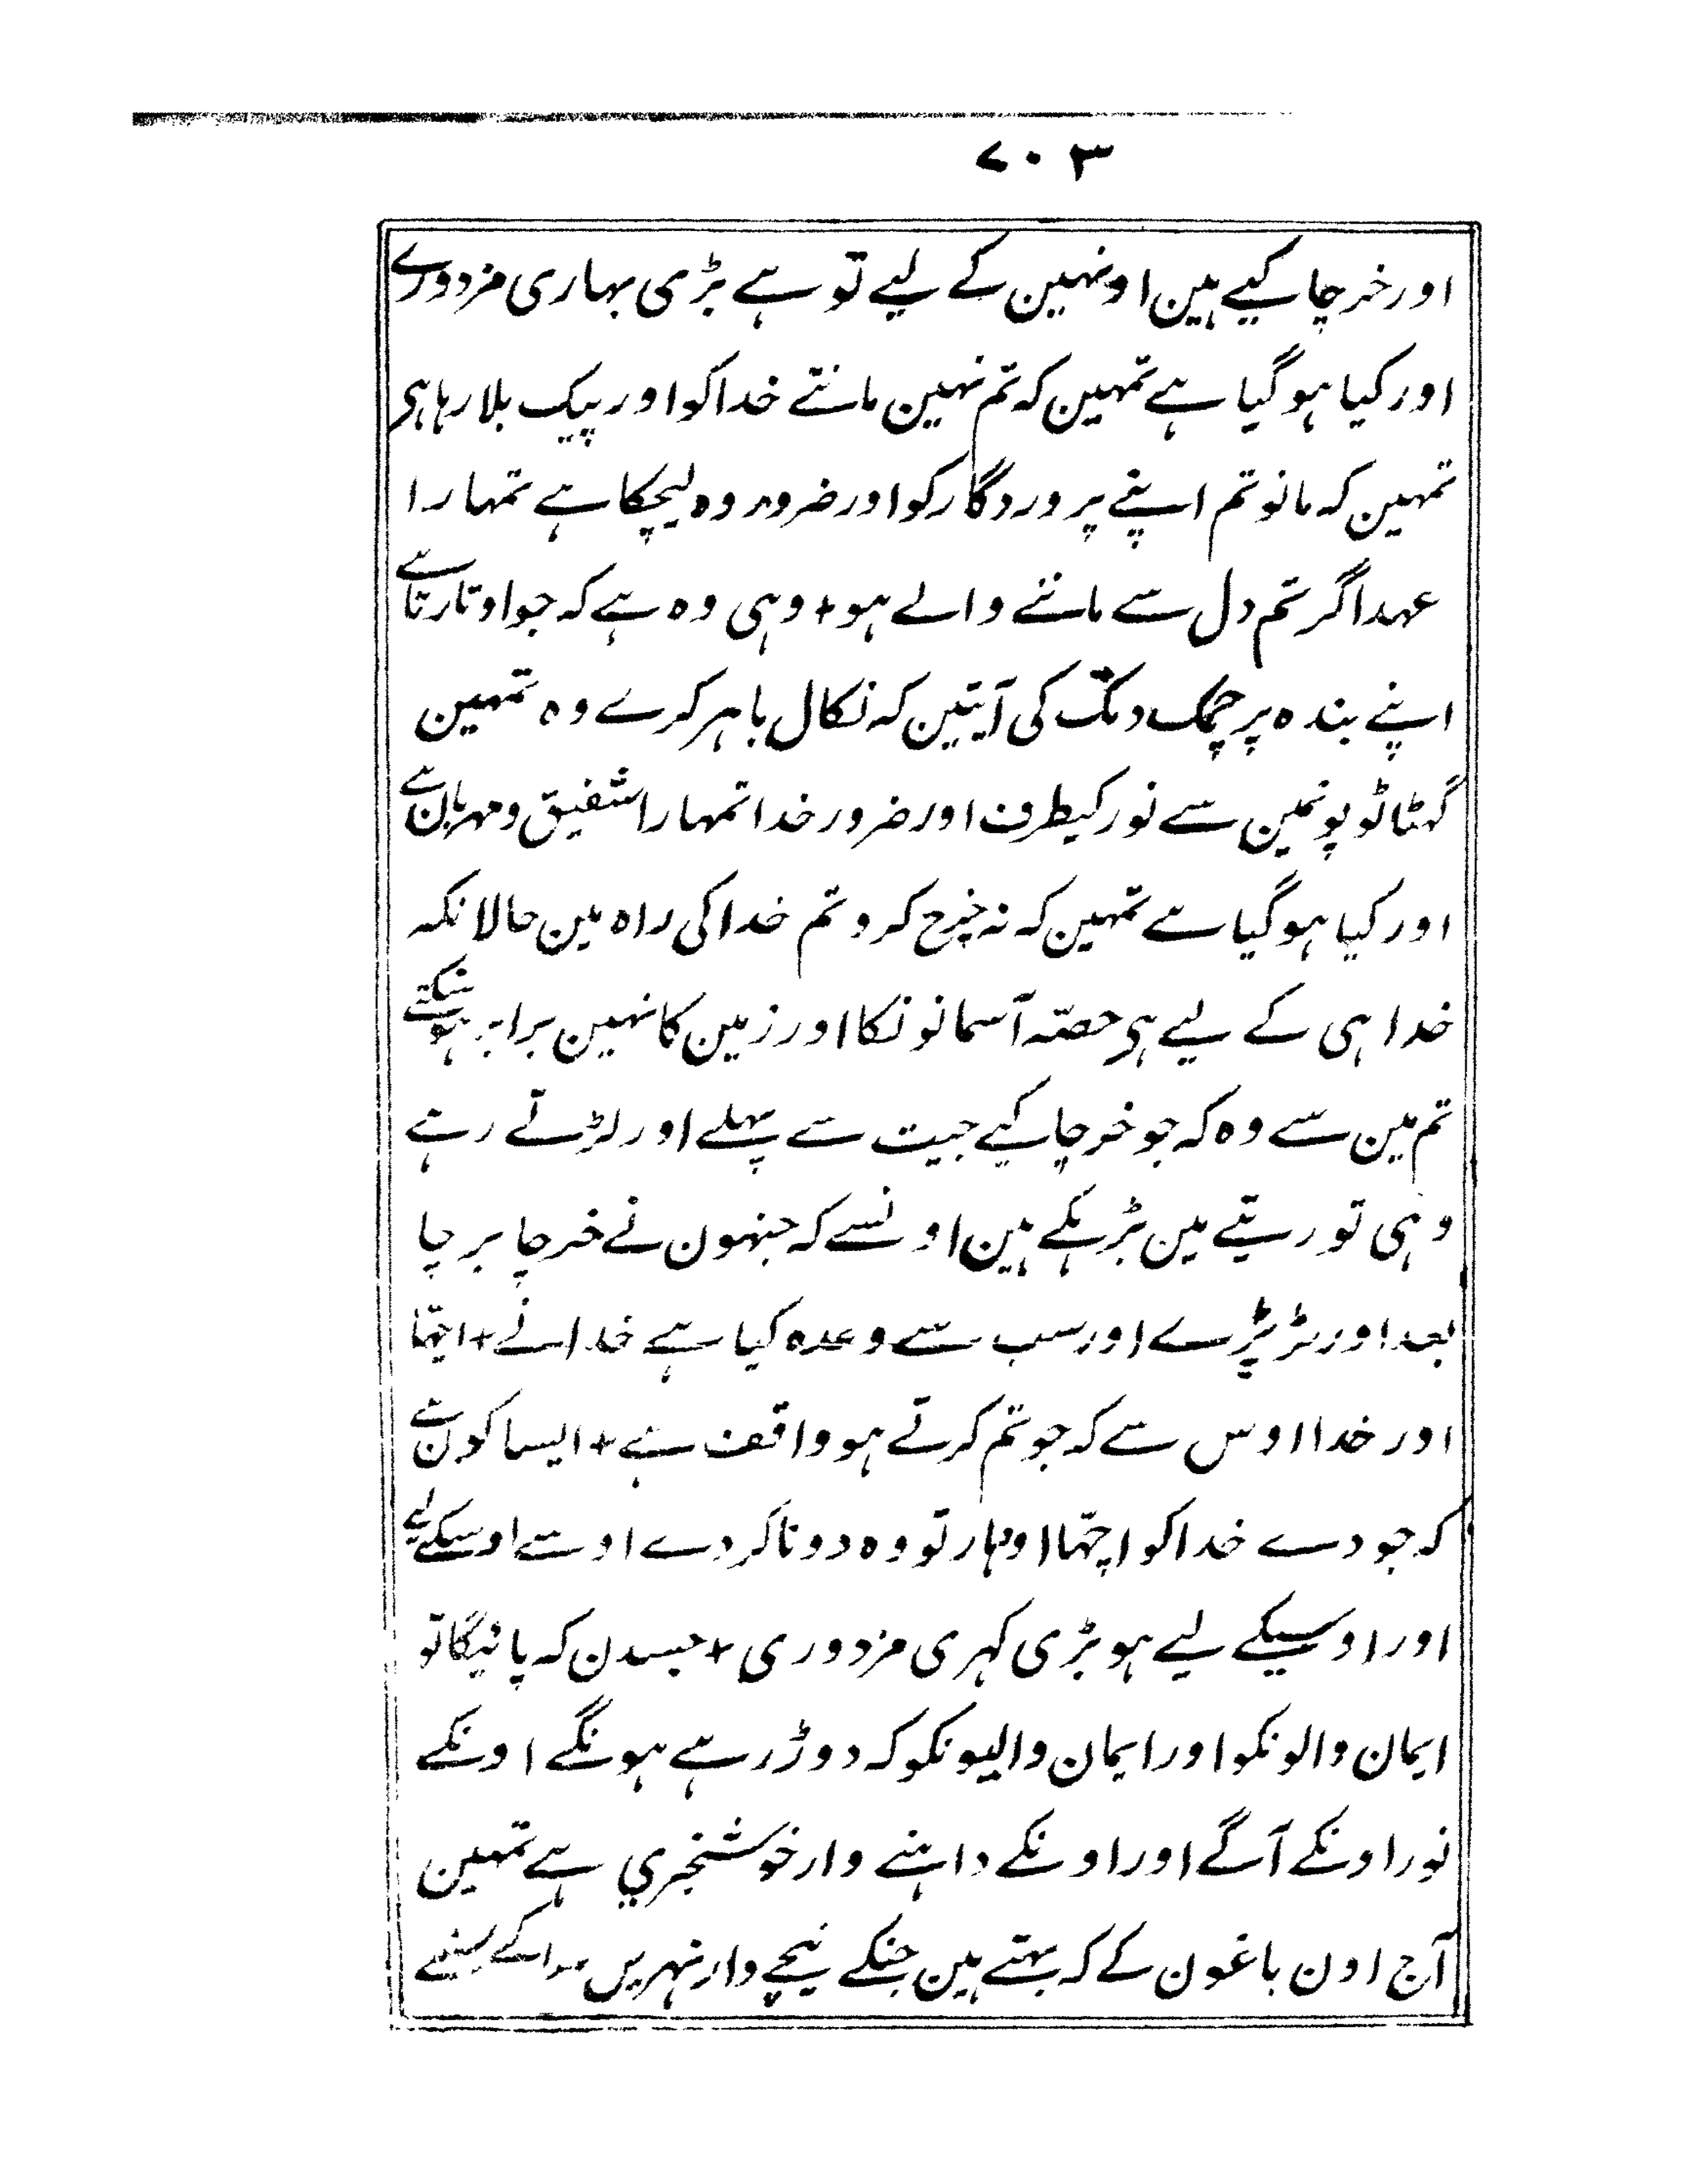 ۷۰۳
اور خرچا کیے ہین اونہین کے لیے تو ہے بڑی بہاری مزدورے
اور کیا ہو گیا ہے تمہین کہ تم نہین مانتے خدا کو اور پیک بلا رہا ہی
تمہین کہ مانو تم اپنے پروردگار کو اور ضرور وہ لیچکا ہے تمہارا
عہد اگر تم دل سے ماننے والے ہو + وہی وہ ہے کہ جو اوتارتا ہے
اپنے بندہ پر چمک دمک کی آیتین کہ نکال باہر کرے وہ تمہین
گہٹا ٹوپونمین سے نور کیطرف اور ضرور خدا تمہارا شفیق و مہربان ہے
اور کیا ہو گیا ہے تمہین کہ نہ خرچ کرو تم خدا کی راہ مین حالانکہ
خدا ہی کے لیے ہی حصّہ آسمانونکا اور زمین کا نہین برابر ہو سکتے
تم مین سے وہ کہ جو خرچا کیے جیت سے پہلے اور لڑتے رہے
وہی تو رتبے مین بڑہکے ہین اونسے کہ جنہون نے خرچا برچا
بعد اور لڑ پڑے اور سب سے وعدہ کیا ہے خدا نے + اچّہا
اور خدا اوس سے کہ جو تم کرتے ہو واقف ہے + ایسا کون ہے
کہ جو دے خدا کو اچّہا اودہار تو وہ دونا کر دے اوسے اوسکے لیے
اور اوسیکے لیے ہو بڑی کہری مزدوری + جسدن کہ پائیگا تو
ایمان والونکو اور ایمان والیونکو کہ دوڑ رہے ہونگے اونکے
نور اونکے آگے اور اونکے داہنے وار خوشخبری ہے تمہین
آج اون باغون کے کہ بہتے ہین جنکے نیچے وار نہریں